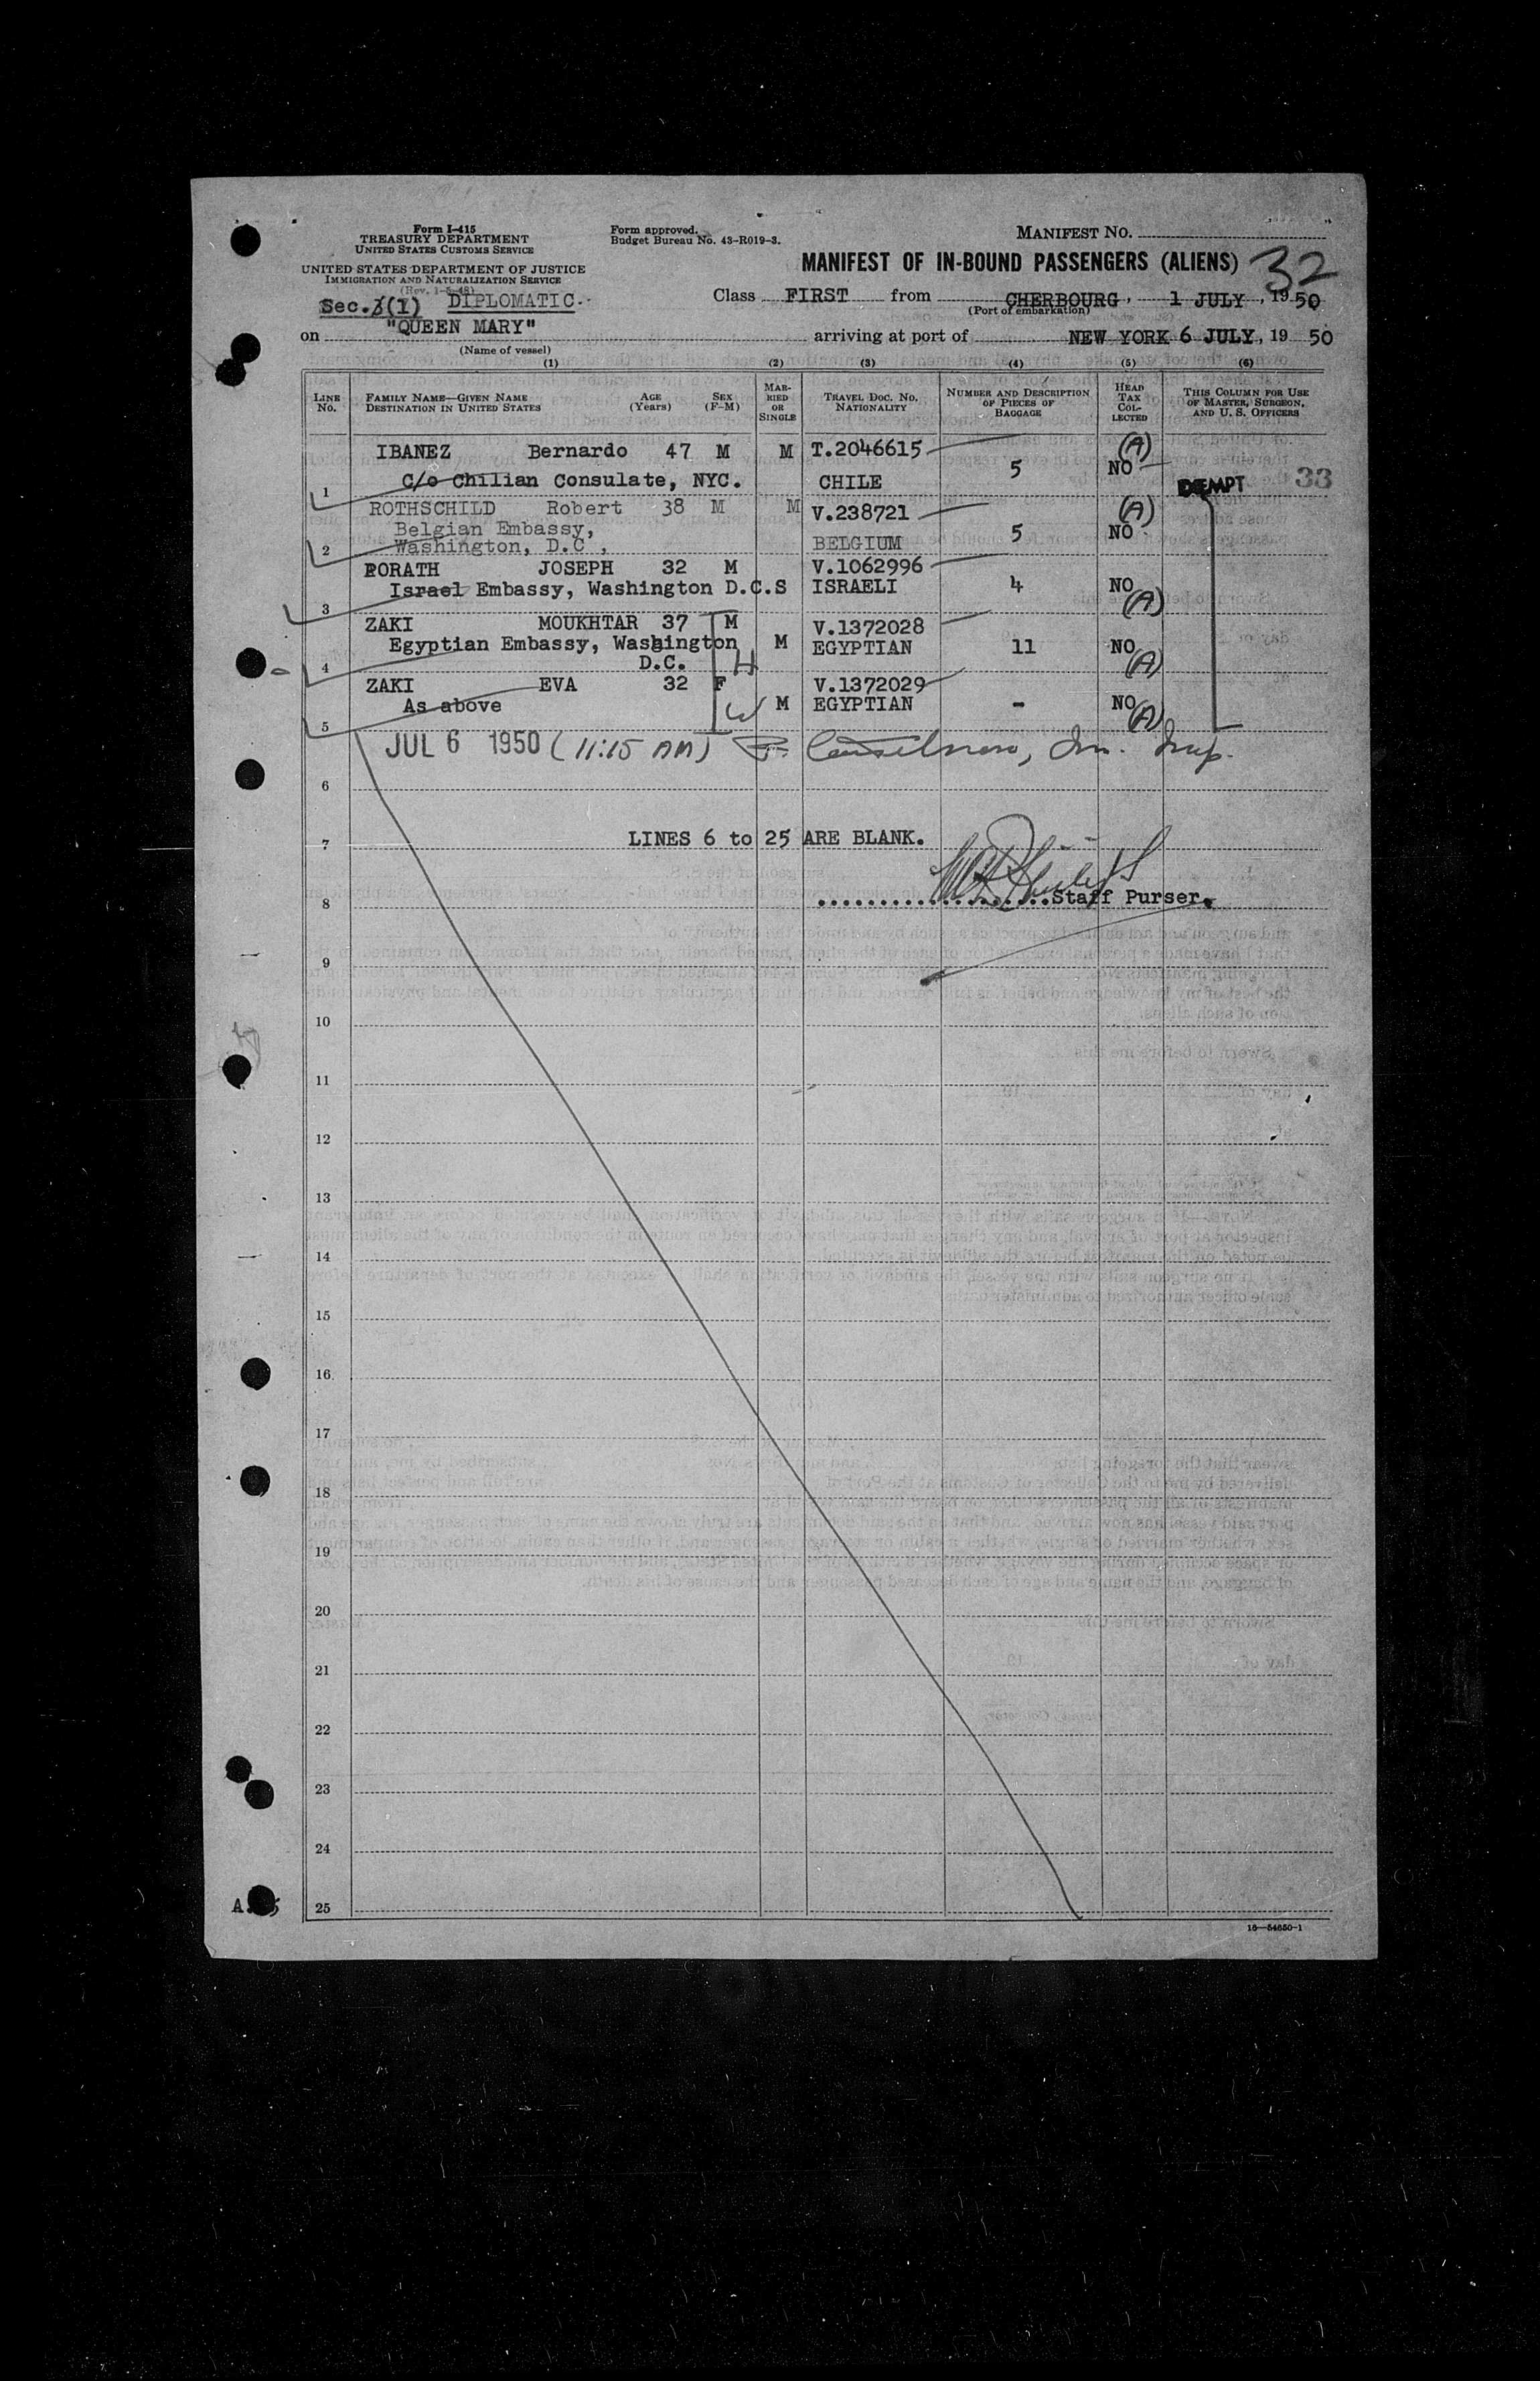 Form I-415
TREASURY DEPARTMENT
UNITED STATES CUSTOMS SERVICE
Form approved.
Budget Bureau No. 43-R019-3.
MANIFEST NO.
UNITED STATES DEPARTMENT OF JUSTICE
IMMIGRATION AND NATURALIZATION SERVICE
MANIFEST OF IN-BOUND PASSENGERS (ALIENS) 32
(Rev. 1-5-48)
Sec.3(1) DIPLOMATIC.
Class FIRST from CHERBOURG, 1 JULY, 1950
(Port of embarkation)
on "QUEEN MARY" arriving at port of NEW YORK 6 JULY, 19 50
(Name of vessel)
(1) (2) (3) (4) (5) (6)
LINE No. FAMILY NAME—GIVEN NAME DESTINATION IN UNITED STATES AGE (Years) SEX (F-M) MARRIED OR SINGLE TRAVEL DOC. NO. NATIONALITY NUMBER AND DESCRIPTION OF PIECES OF BAGGAGE HEAD TAX COLLECTED THIS COLUMN FOR USE OF MASTER, SURGEON, AND U. S. OFFICERS
IBANEZ Bernardo 47 M M T.2046615 (A)
1 C/o Chilian Consulate, NYC. CHILE 5 NO 33
EXEMPT
ROTHSCHILD Robert 38 M M V.238721 (A)
Belgian Embassy, 5 NO
2 Washington, D.C, BELGIUM
PORATH JOSEPH 32 M V.1062996
Israel Embassy, Washington D.C.S ISRAELI 4 NO
3 (A)
ZAKI MOUKHTAR 37 M V.1372028
Egyptian Embassy, Washington M EGYPTIAN 11 NO
4 D.C. H (A)
ZAKI EVA 32 F V.1372029
As above W M EGYPTIAN - NO
5 (A)
JUL 6 1950 (11:15 AM) Im. Insp.
6
7 LINES 6 to 25 ARE BLANK.
8 Staff Purser.
9
10
11
12
13
14
15
16
17
18
19
20
21
22
23
24
25
16—54650-1